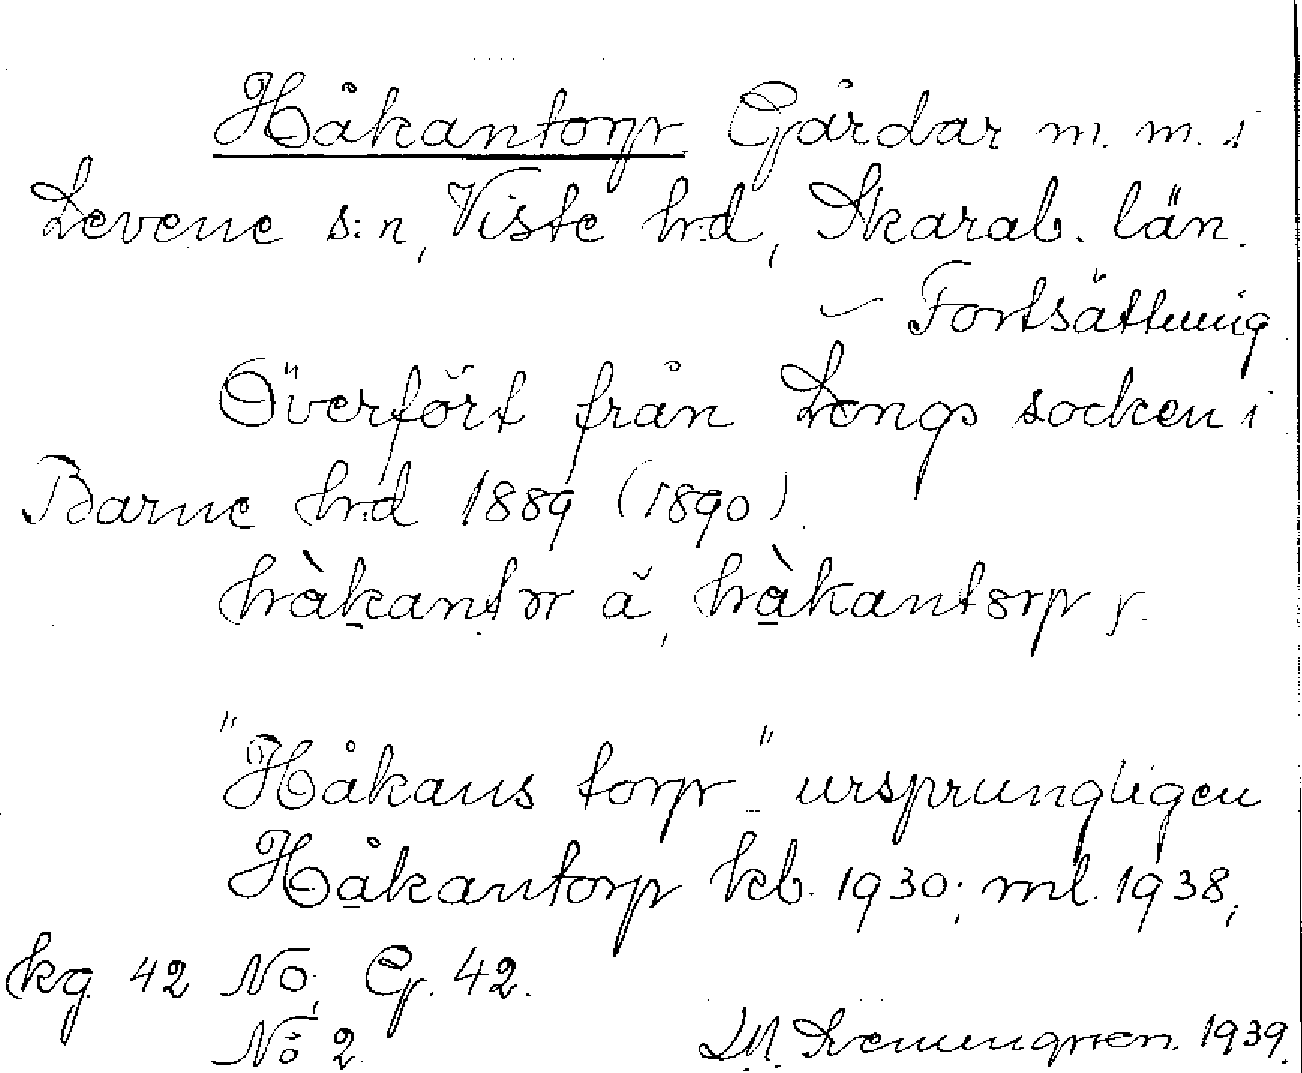 Håkantorp Gårdar m. m. i
Levene s:n, Viste hd, Skarab. län.
– Fortsättning
Överfört från Longs socken i
Barne hd 1889 (1890).
hå̀kantor ä, hå̀kantorp y.
"Håkans torp" ursprungligen
Håkantorp kb. 1930; ml. 1938,
kg 42 NO; G. 42.
NÖ 2.
1939.